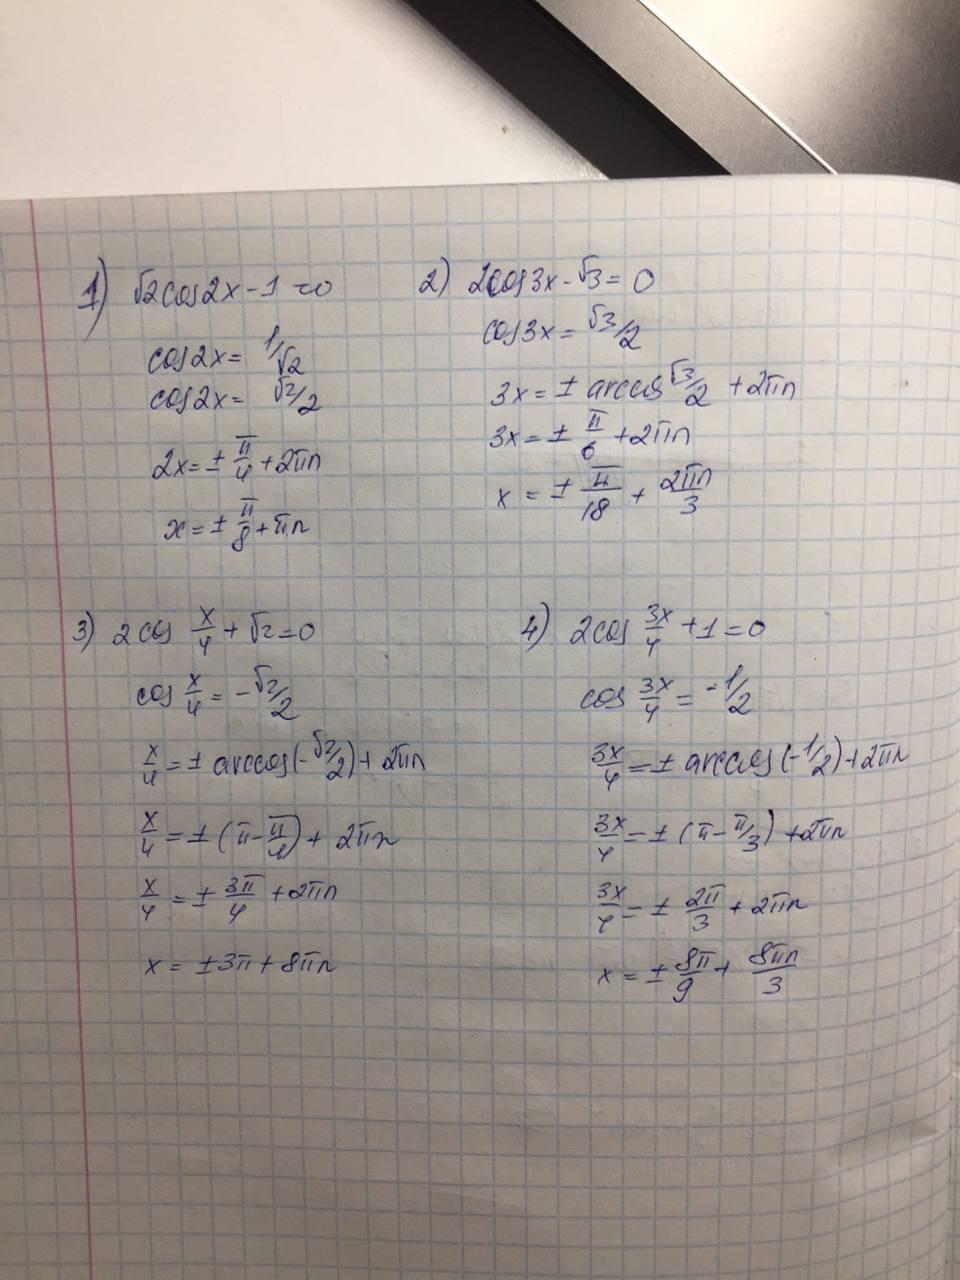 1) √2cos2x - 1 = 0
cos2x = 1/√2
cos2x = √2/2
2x = ± π/4 + 2πn
x = ± π/8 + πn
2) 2cos3x - √3 = 0
cos3x = √3/2
3x = ± arccos √3/2 + 2πn
3x = ± π/6 + 2πn
x = ± π/18 + 2πn/3
3) 2cos x/4 + √2 = 0
cos x/4 = -√2/2
x/4 = ± arccos(-√2/2) + 2πn
x/4 = ± (π - π/4) + 2πn
x/4 = ± 3π/4 + 2πn
x = ±3π + 8πn
4) 2cos 3x/4 + 1 = 0
cos 3x/4 = -1/2
3x/4 = ± arccos(-1/2) + 2πn
3x/4 = ± (π - π/3) + 2πn
3x/4 = ± 2π/3 + 2πn
x = ± 8π/9 + 8πn/3